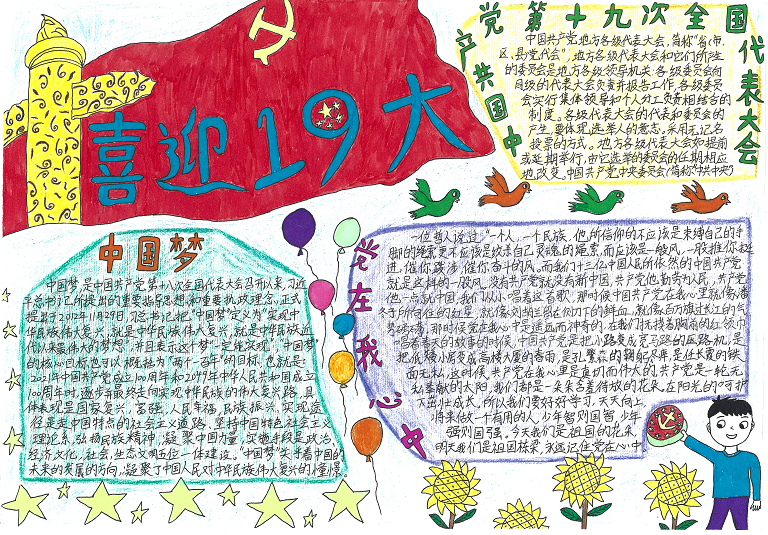 喜迎19大
中国共产党第十九次全国代表大会
中国共产党地方各级代表大会,简称"省(市、
区、县)党代会",地方各级代表大会和它们所产生
的委员会是地方各级领导机关.各级委员会向
同级的代表大会负责并报告工作.各级委员
会实行集体领导和个人分工负责相结合的
制度。各级代表大会的代表和委员会的
产生,要体现选举人的意志,采用无记名
投票的方式。地方各级代表大会如提前
或延期举行,由它选举的委员会的任期相应
地改变。中国共产党中央委员会(简称"中共中央")
中国梦
中国梦,是中国共产党第十八次全国代表大会召开以来,习近
平总书记所提出的重要指导思想和重要执政理念,正式
提出于2012年11月29日。习总书记把"中国梦"定义为"实现中
华民族伟大复兴,就是中华民族伟大复兴,就是中华民族近
代以来最伟大的梦想",并且表示这个梦"一定能实现"。"中国梦"
的核心目标也可以概括为"两个一百年"的目标,也就是:
2021年中国共产党成立100周年和2049年中华人民共和国成立
100周年时,逐步并最终走向实现中华民族的伟大复兴路,具
体表现是国家复兴、富强、人民幸福、民族振兴,实现途
径是走中国特点的社会主义道路、坚持中国特色社会主义
理论系、弘扬民族精神、凝聚中国力量,实施手段是政治、
经济文化、社会、生态文明五位一体建设。"中国梦"关乎着中国的
未来的发展的方向,凝聚了中国人民对中华民族伟大复兴的憧憬
党在我心中
一位哲人说过:"一个人,一个民族,他所信仰的不应该是束缚自己的手
脚的绳索更不应该是绞杀自己灵魂的绳索,而应该是一般风,一股推你挺
进,催你跋涉,催你奋斗的风。而我们十三亿中国人民所依然的中国共产党
就是这样的一股风。没有共产党就没有新中国,共产党他勤劳为人民,共产党
他一点就中国,我们从小唱着这首歌,那时候中国共产党在我心里就像潘
冬子所向往的红星,就像刘胡兰倒在铡刀下的鲜血,就像百万雄过长江的气
势磅礴,那时候党在我心中是遥远而神奇的,在我们抚摸着胸前的红领巾
唱着春天的故事的时候,中国共产党是把小路变成宽马路的压路机,是
把低矮小房变成高楼大厦的春雨,是孔繁森的鞠躬尽瘁,是任长霞的铁
面无私,这时候,共产党在我心里是真切而伟大的,共产党是一轮无
私奉献的太阳,我们都是一朵朵含着待放的花朵,在阳光的呵护
下茁壮成长,所以我们要好好学习,天天向上,
将来做一个有用的人,少年智则国智,少年
强则国强。今天我们是祖国的花朵,
明天我们是祖国栋梁,永远记住党在心中